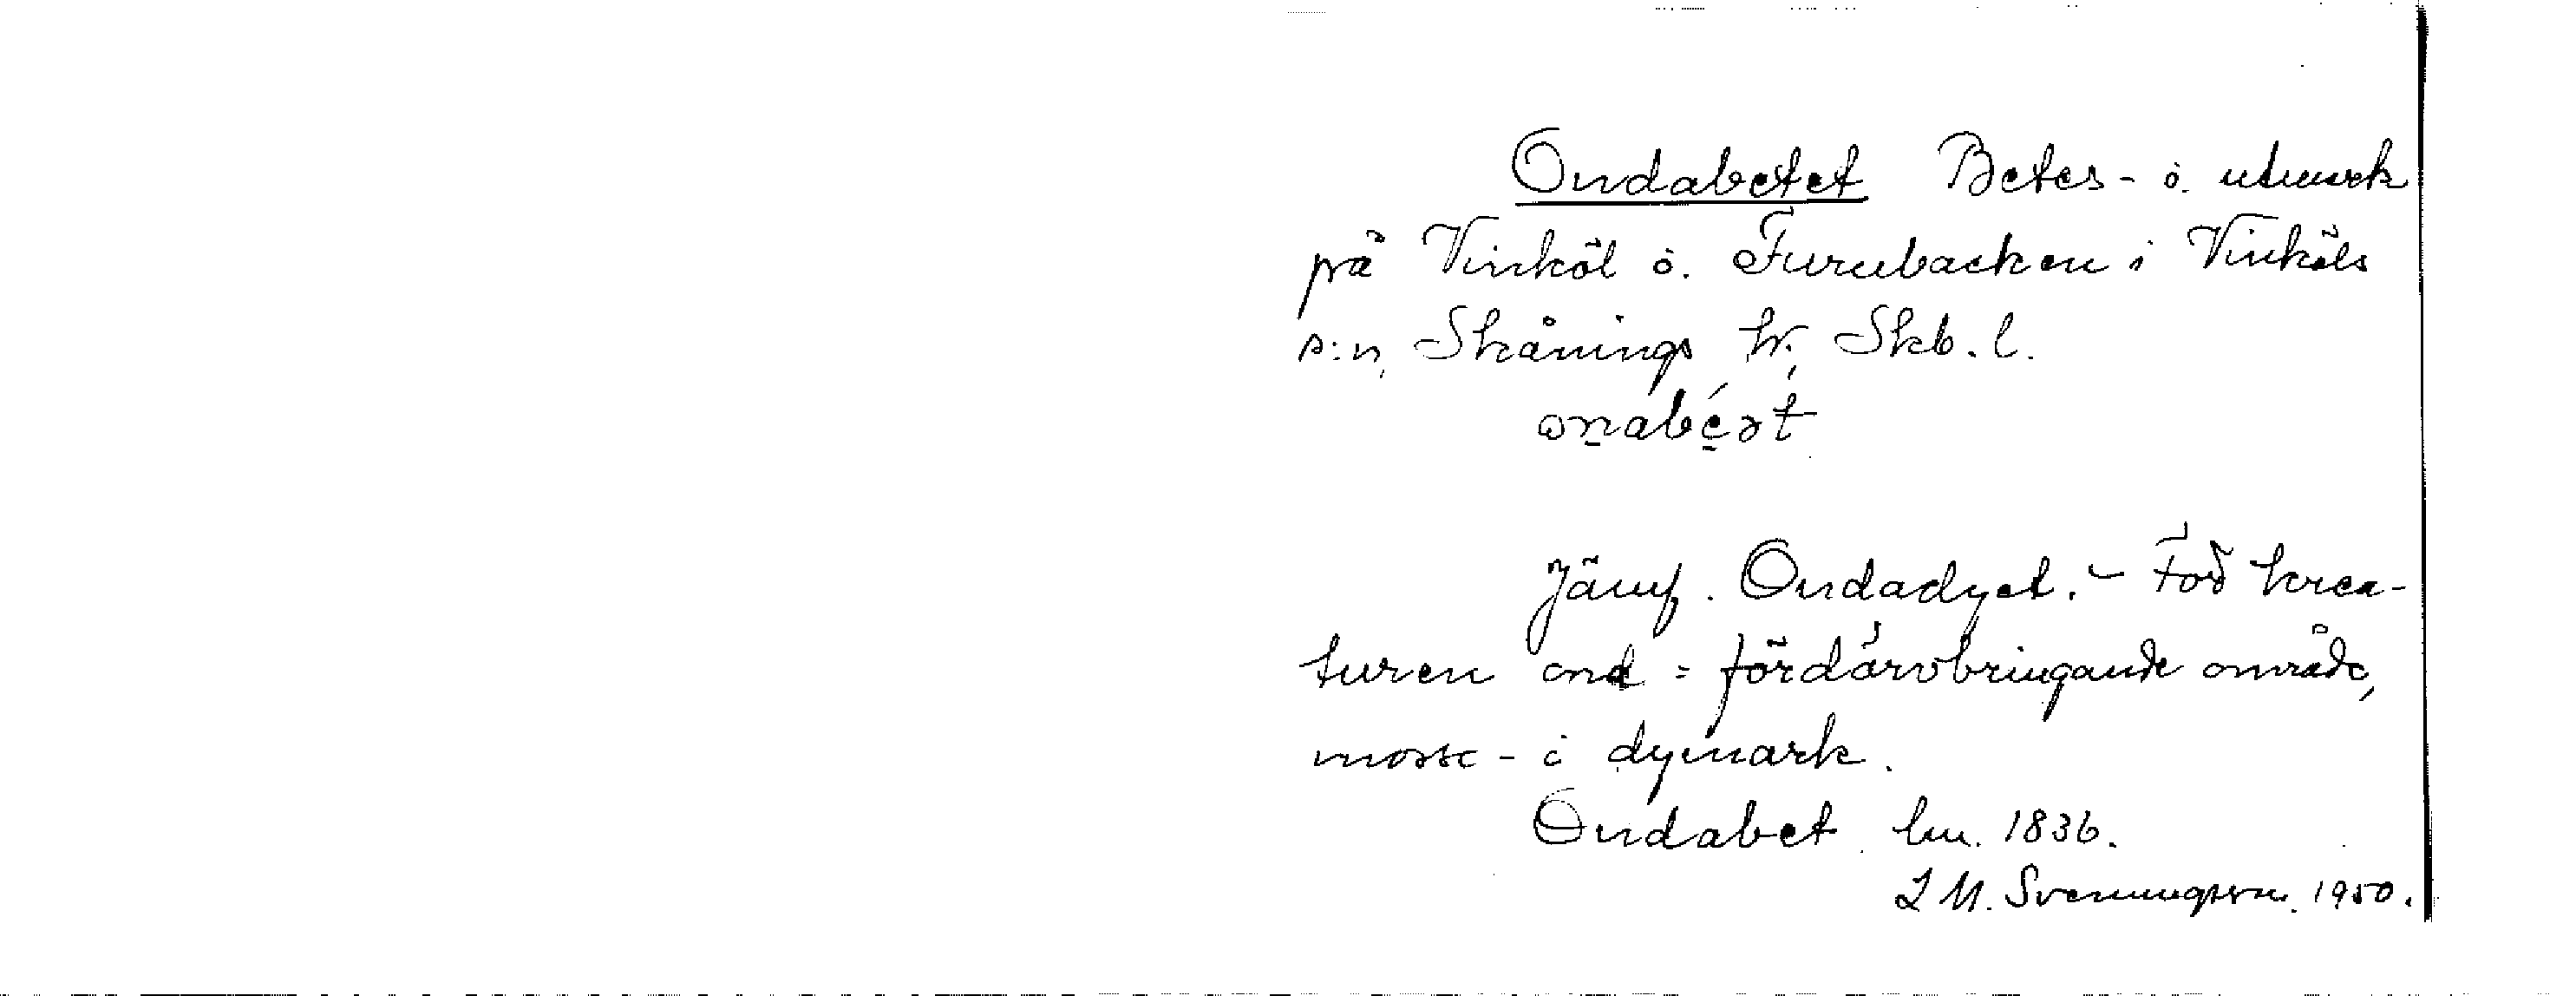 Ondabetet Betes- o. utmark
på Vinköl o. Furubacken i Vinköls
s:n, Skånings hr, Skb. l.
Jämf. Ondadyet. - För krea-
turen ond = fördärvbringande område,
moss- o dymark.
Ondabet lm. 1836.
I M. Svenungsson. 1950.